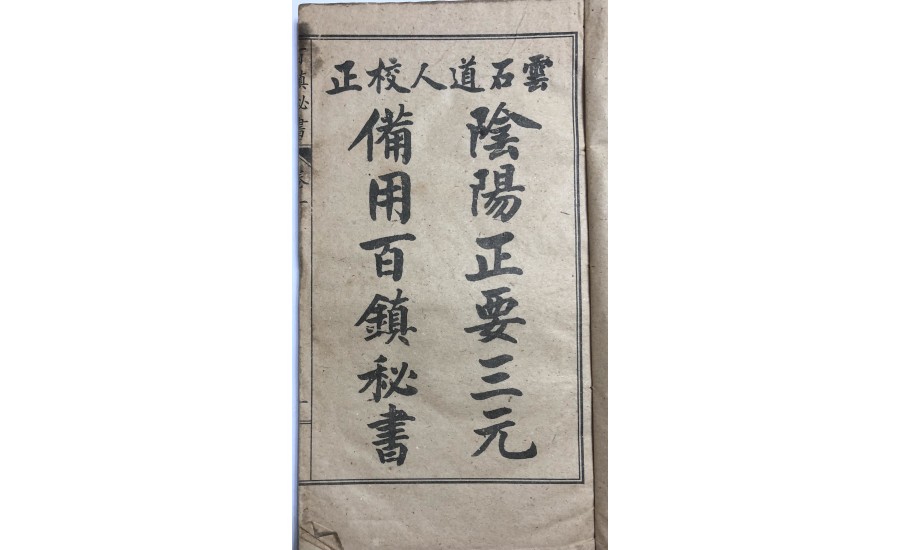 雲石道人校正
陰陽正要三元
備用百鎮秘書
百鎮秘書
卷一
一